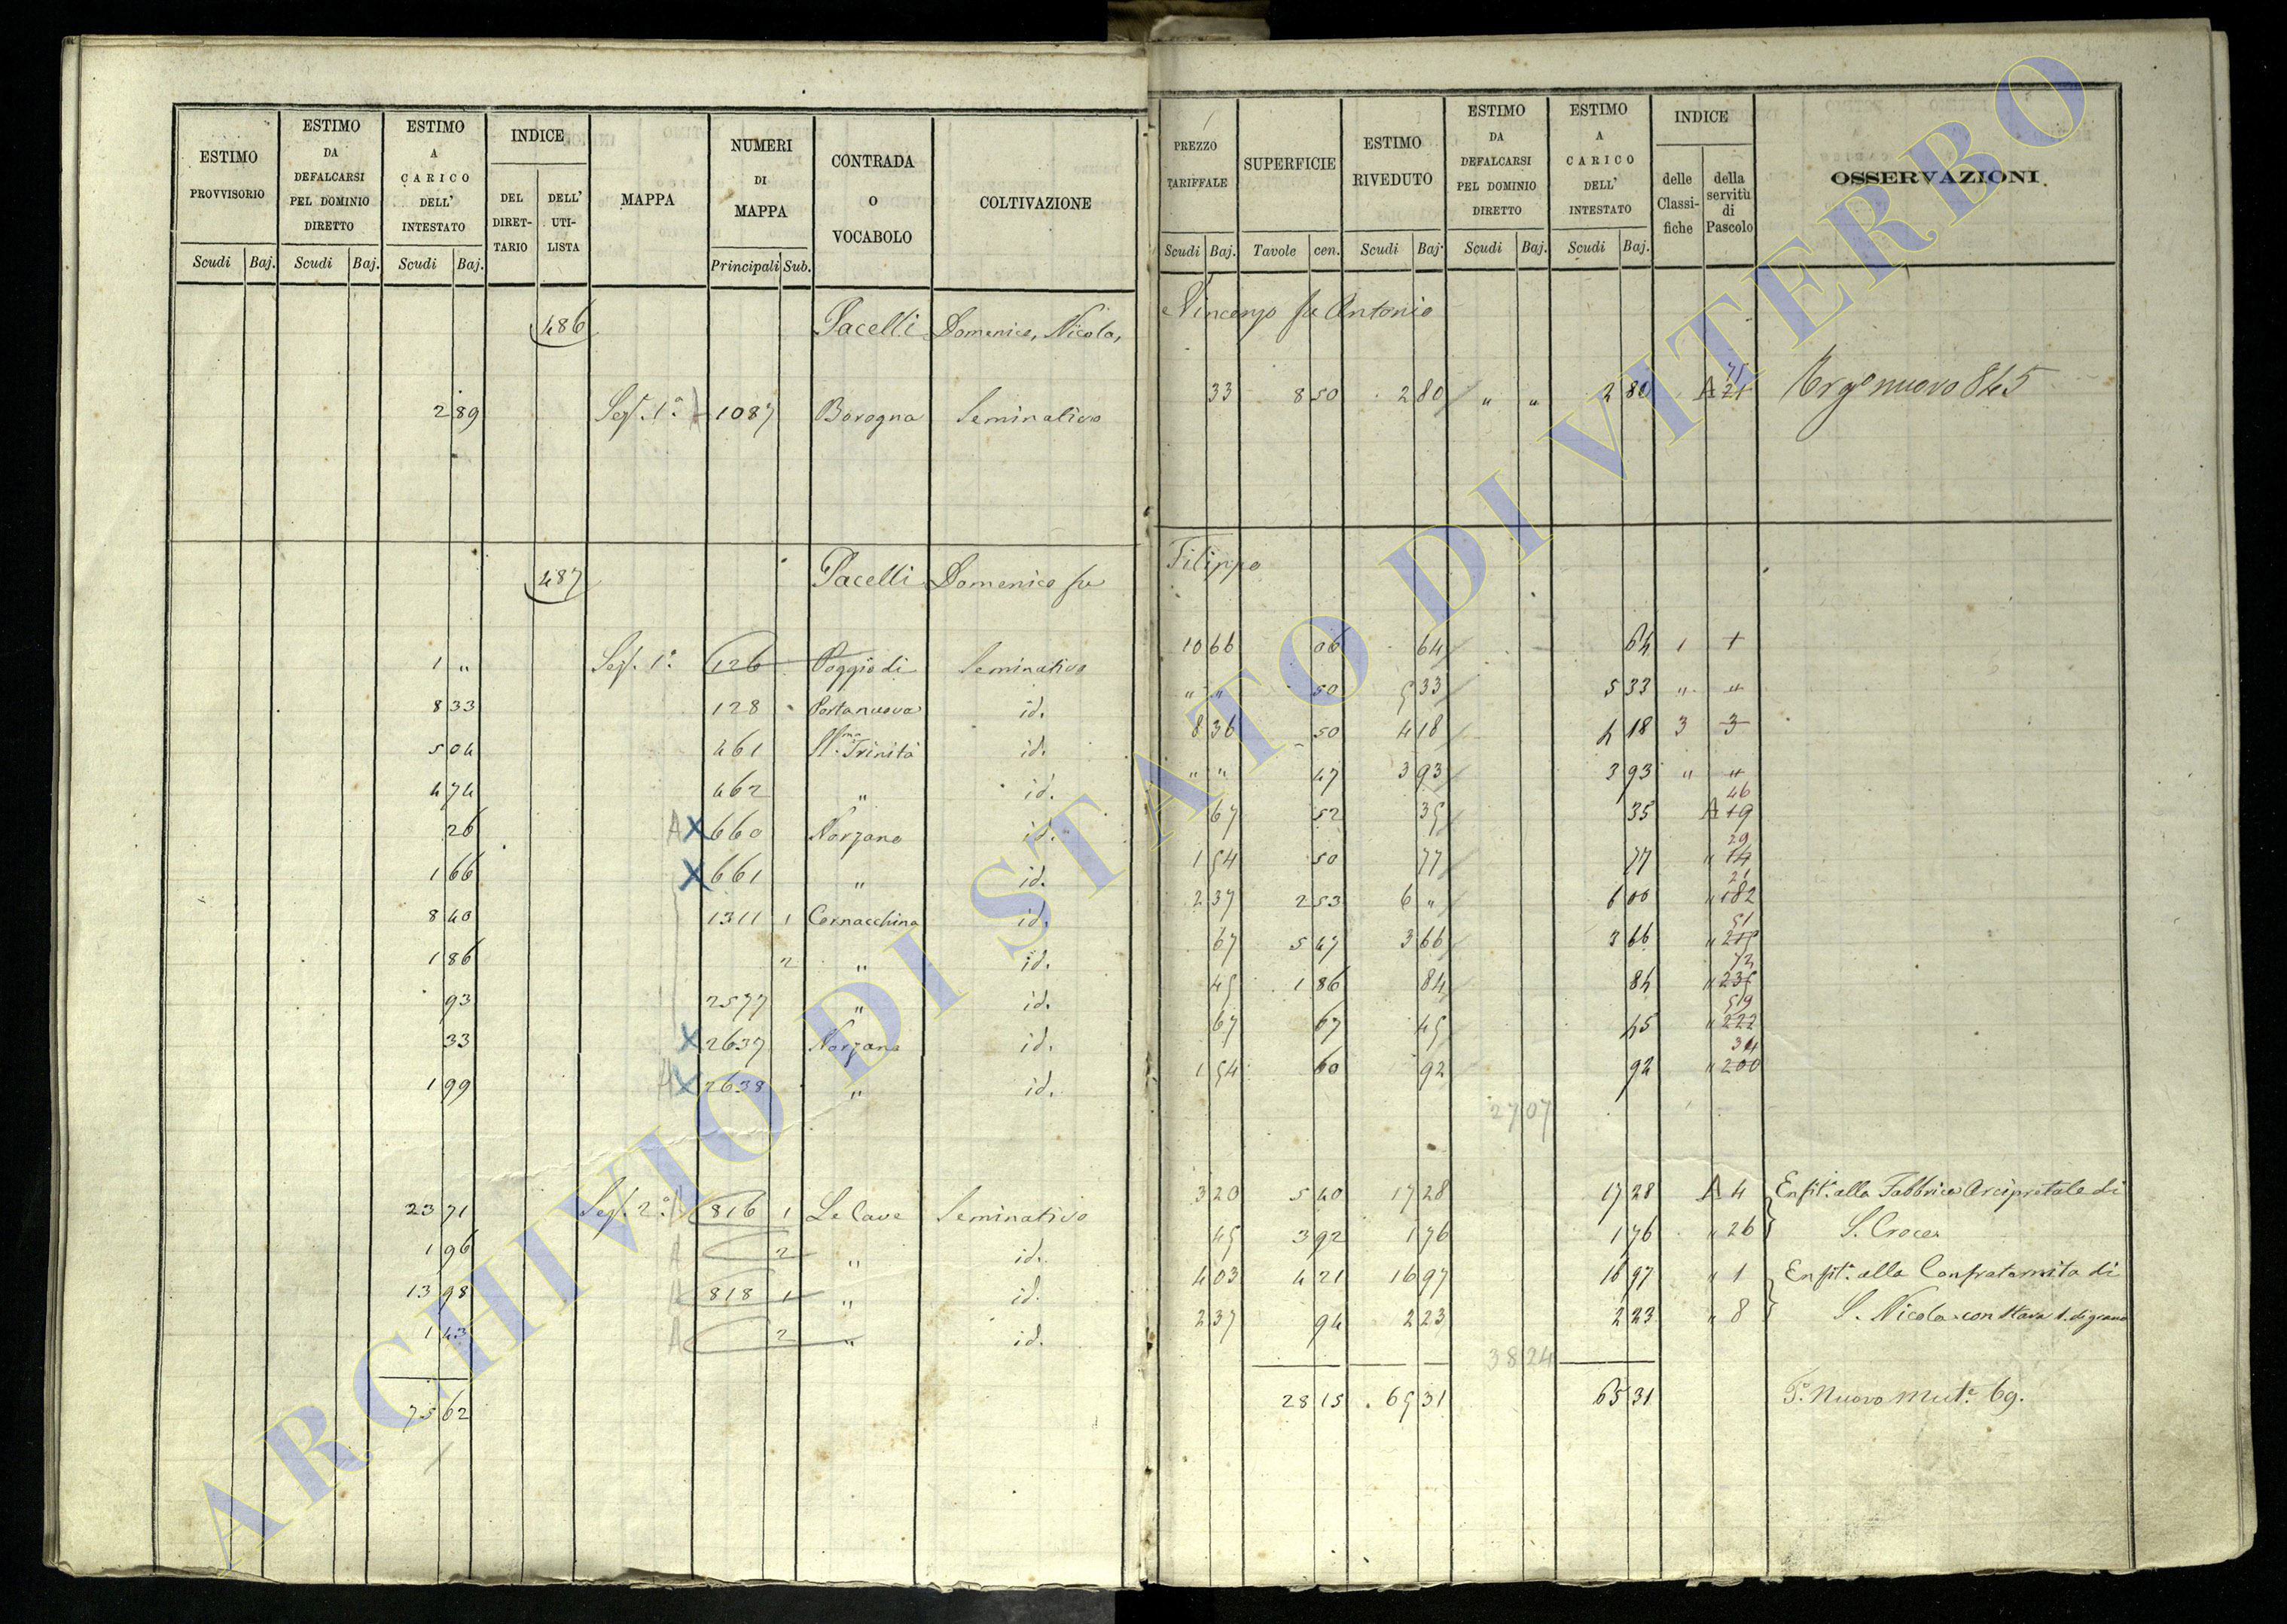 ESTIMO PROVVISORIO Scudi Baj.
ESTIMO DA DEFALCARSI PEL DOMINIO DIRETTO Scudi Baj.
ESTIMO A CARICO DELL' INTESTATO Scudi Baj.
INDICE DEL DIRET-TARIO DELL' UTI-LISTA
MAPPA
NUMERI DI MAPPA Principali Sub.
CONTRADA O VOCABOLO
COLTIVAZIONE
PREZZO TARIFFALE Scudi Baj.
SUPERFICIE Tavole cen.
ESTIMO RIVEDUTO Scudi Baj.
ESTIMO DA DEFALCARSI PEL DOMINIO DIRETTO Scudi Baj.
ESTIMO A CARICO DELL' INTESTATO Scudi Baj.
INDICE delle Classi-fiche della servitù di Pascolo
OSSERVAZIONI
486 Pacelli Domenico, Nicola, Vincenzo fu Antonio
2 89 Sez. 1ª 1087 Borogna Seminativo 33 8 50 2 80 " " 2 80 A 21 71 nuovo 845
487 Pacelli Domenico fu Filippo
1 " Sez. 1ª 126 Poggio di Seminativo 10 66 06 64 64 1 1
8 33 128 Portanuova id. " " 50 5 33 5 33 " "
5 04 461 SSma Trinità id. 8 36 50 4 18 4 18 3 3
4 74 462 " id. " " 47 3 93 3 93 " "
26 A X 660 Norzano id. 67 52 35 35 A 19 46
1 66 X 661 " id. 1 54 50 77 77 " 14 29
8 40 1311 1 Cornacchina id. 2 37 2 53 6 " 6 00 " 182 21
1 86 2 " id. 67 5 47 3 66 3 66 " 215 51
93 2577 " id. 45 1 86 84 84 " 235 72
33 X 2637 Norzano id. 67 67 45 45 " 222 519
1 99 A X 2638 " id. 1 54 60 92 92 " 200 34
27 07
23 71 Sez. 2ª A 816 1 Le Cave Seminativo 3 20 5 40 17 28 17 28 A 4 Enfit. alla Fabbrica Arcipretale di
1 96 A 2 " id. 45 3 92 1 76 1 76 " 26 S. Croce
13 98 A 818 1 " id. 4 03 4 21 16 97 16 97 " 1 Enfit. alla Confraternita di
1 43 A 2 " id. 2 37 94 2 23 2 23 " 8 S. Nicola con di grano
38 24
75 62 28 15 65 31 65 31 Nuovo Mut. 69.
ARCHIVIO DI STATO DI VITERBO